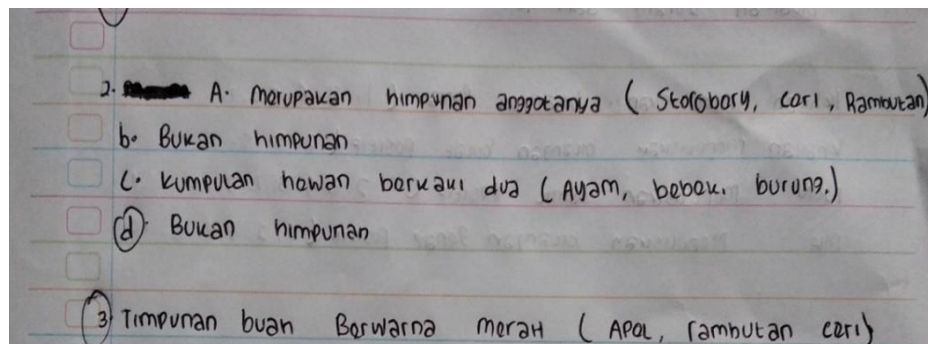 2. A. Merupakan himpunan anggotanya ( Storobory, Cerl, Rambutan)
b. Bukan himpunan
C. Kumpulan hewan berkaki dua ( Ayam, bebek, burung.)
d. Bukan himpunan
3 Timpunan buah Berwarna merah ( APel, rambutan ceri)